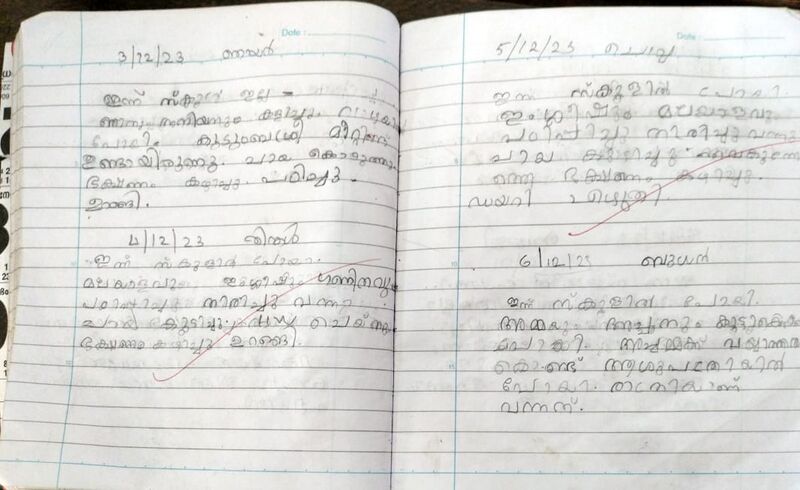 Date :
3/12/23 ഞായർ
ഇന്ന് സ്കൂൾ ഇല്ല
ഞാനും അനിയനും കളിച്ചു.
പോയി. കുടുംബശ്രീ മീറ്റിങ്ങ്
ഉണ്ടായിരുന്നു. ചായ
ഭക്ഷണം കഴിച്ചു. പഠിച്ചു.
ഉറങ്ങി.
4/12/23 തിങ്കൾ
ഇന്ന് സ്കൂളിൽ പോയി.
മലയാളവും ഇംഗ്ലീഷും ഗണിതവും
പഠിപ്പിച്ചു തിരിച്ചു വന്നു
ചായ കുടിച്ചു.
ഭക്ഷണം കഴിച്ചു ഉറങ്ങി.
Date :
5/12/23 ചൊവ്വ
ഇന്ന് സ്കൂളിൽ പോയി.
ഇംഗ്ലീഷും മലയാളവും
പഠിപ്പിച്ചു തിരിച്ചു വന്നു
ചായ കുടിച്ചു
ഭക്ഷണം കഴിച്ചു.
ഡയറി എഴുതി.
6/12/23 ബുധൻ
ഇന്ന് സ്കൂളിൽ പോയി.
അമ്മയും അച്ഛനും
പോയി. വയ്യാത്തത
കൊണ്ട് ആശുപത്രിയിൽ
പോയി. രാത്രിയാണ്
വന്നത്.